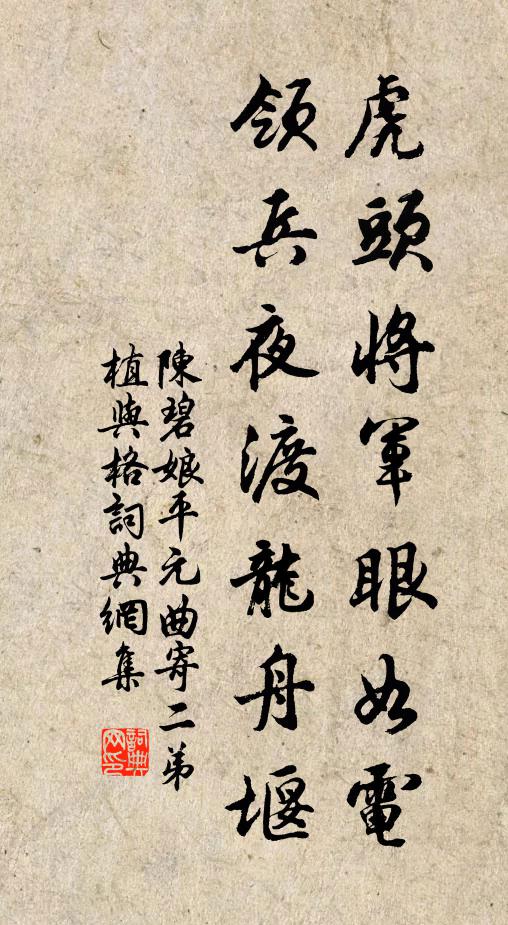 虎頭將軍眼如電
領兵夜渡龍舟堰
陳碧娘平元曲寄二弟
植與格詞典網集
詞典網印